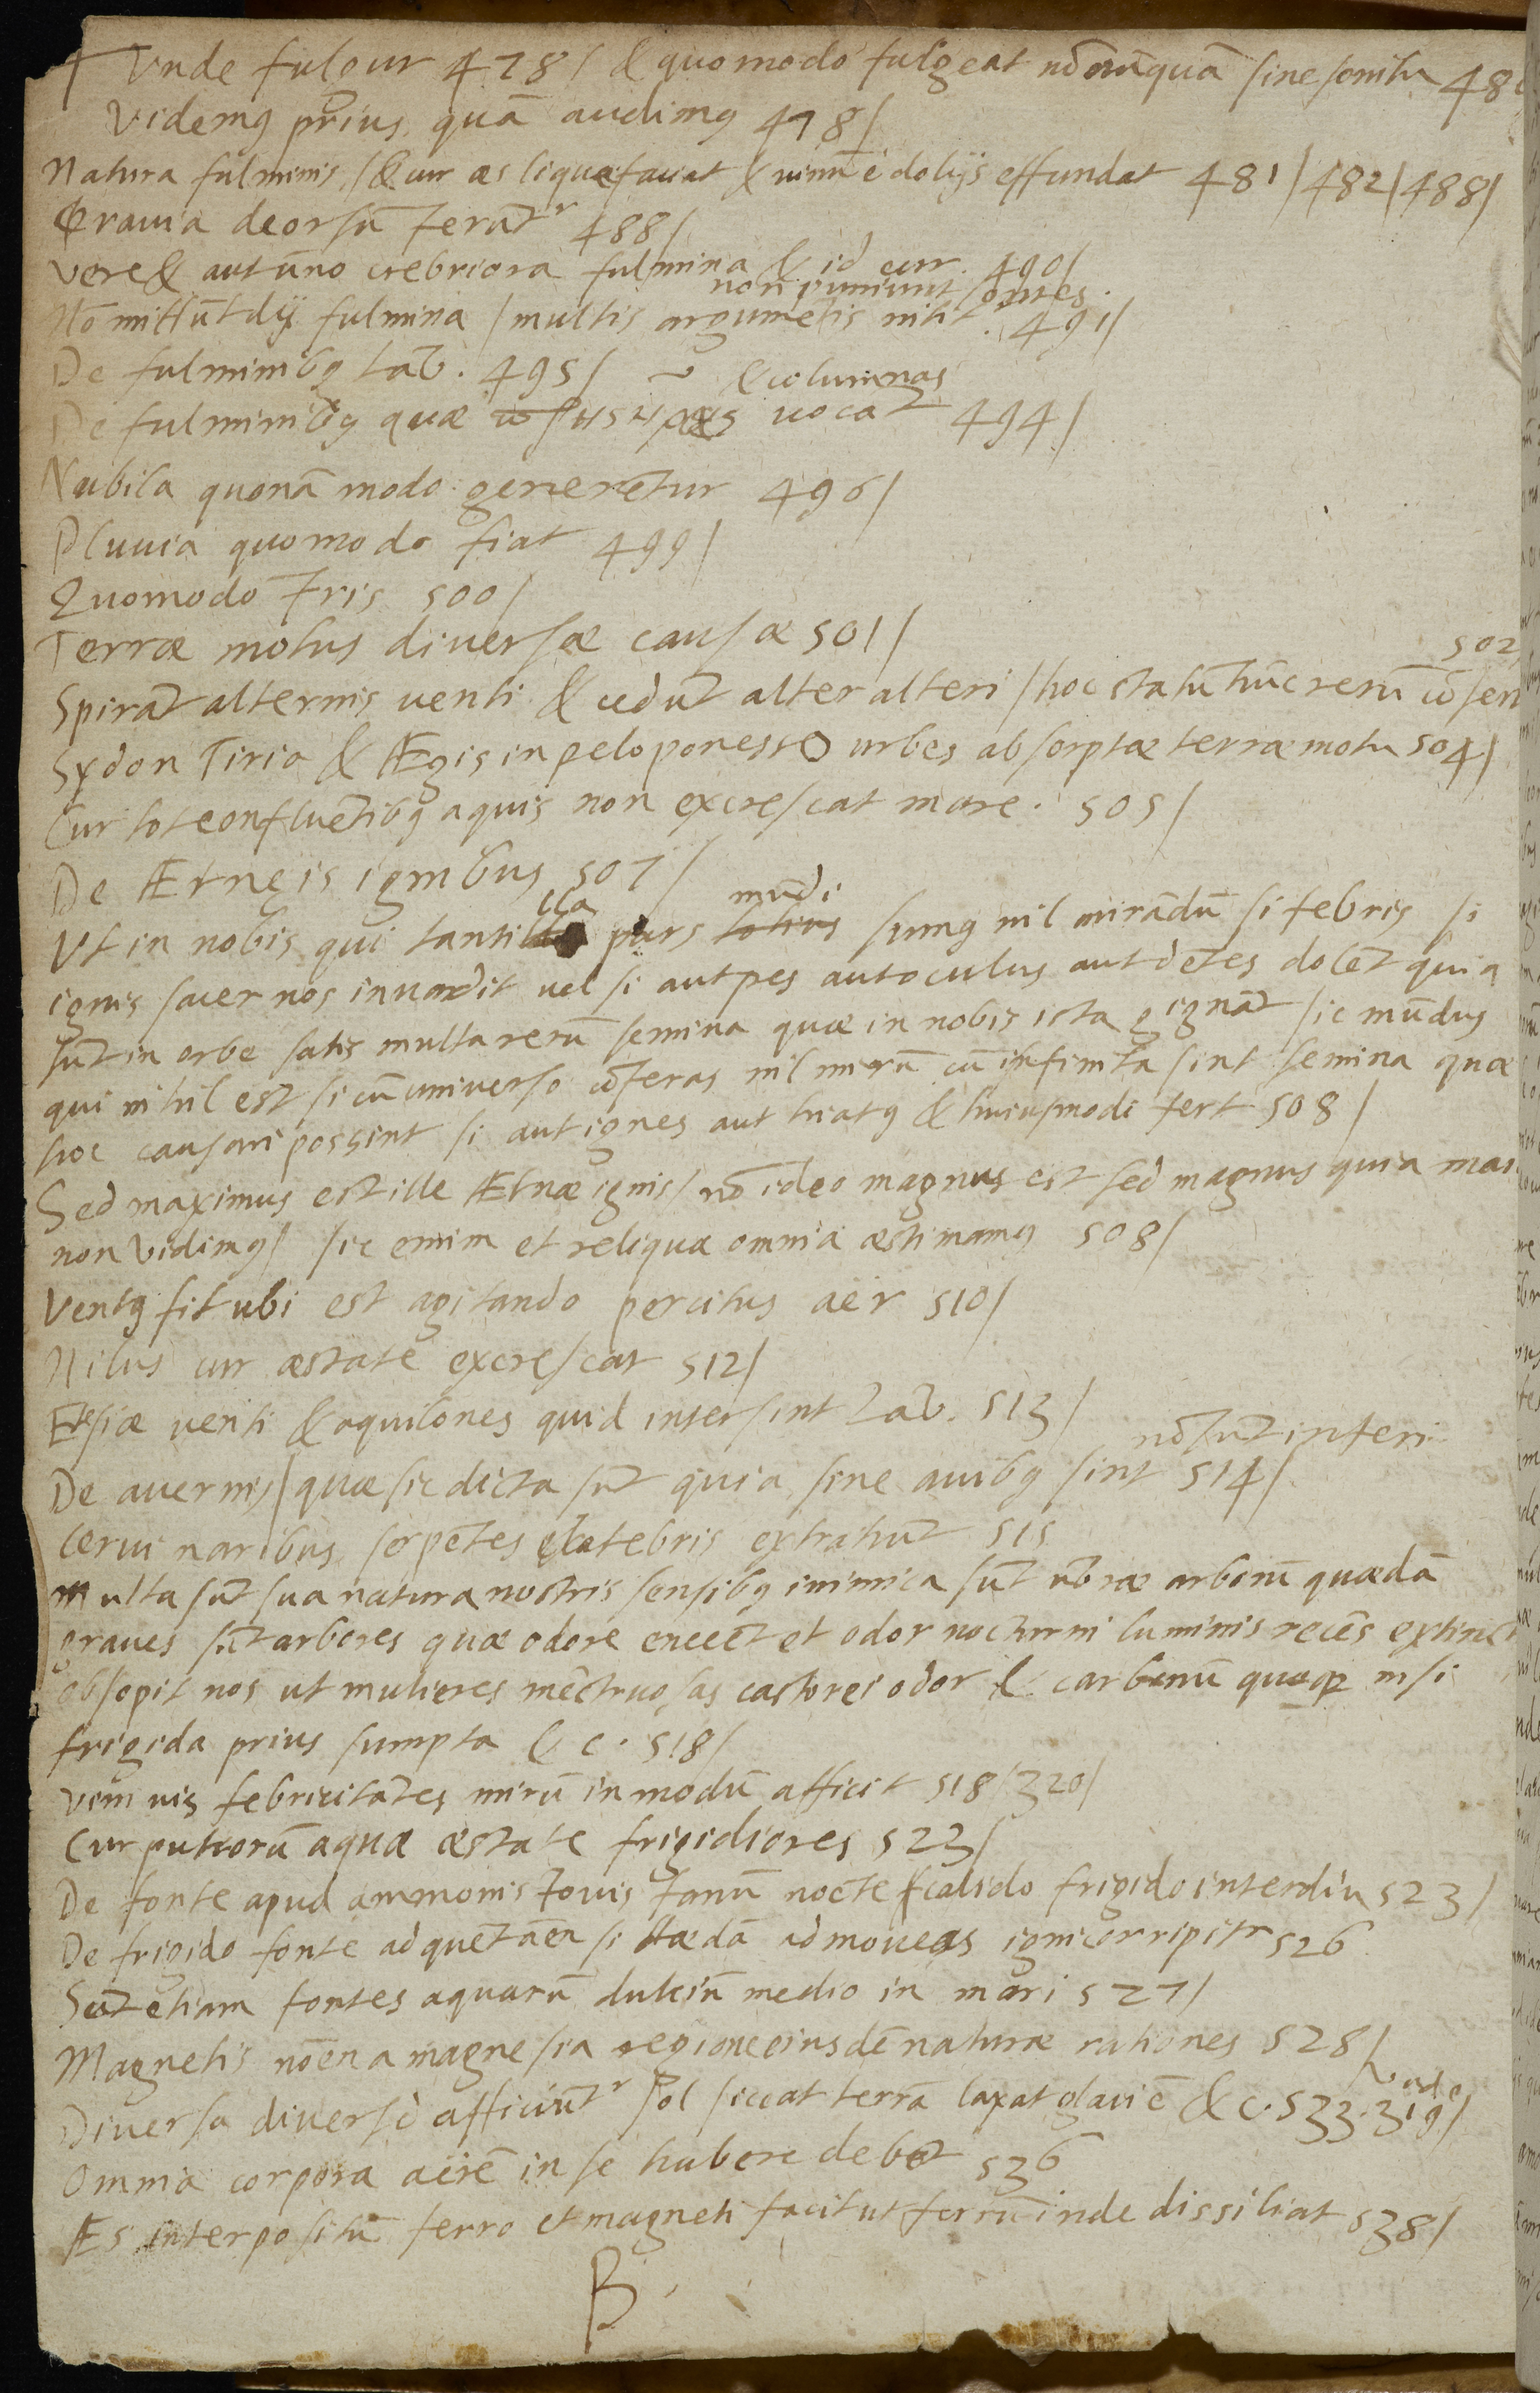 Vnde fulgur 478/ & quomodo fulgeat nōnūquā sine sonitu 48
Videmꝯ prius quā audimꝯ 478/
Natura fulminis /& cur æs liquæfaciat & uinū è dolijs effundat 481/482/488/
Grauia deorsū ferāt^r 488/
Vere & autūno crebriora fulmina & id cur. 490/
non puniunt sontes.
Nō mittūt dij fulmina /multis argumētis nitit^r. 491/
De fulminibꝯ Lab. 495/ & columnas
De fulminibꝯ quæ πρηστηρας uocāt 494/
Nubila quonā modo generētur 496/
Pluuia quomodo fiat 499/
Quomodo Iris 500/
Terræ motus diuersæ causæ 501/
502
Spirāt alternis uenti & cedūt alter alteri /hoc statū hūc rerū cōser
Sydon Tiria & Ægis in peloponesso urbes absorptæ terræ motu 504/
Cur tot confluētibꝯ aquis non excrescat mare. 505/
De Ætneis ignibus 507/
lla mūdi
Vt in nobis qui tanti pars totius sumꝯ nil mirādū si febris si
ignis sacer nos inuadit uel si aut pes aut oculus aut dētes dolēt quia
sūt in orbe satis multa rerū semina quæ in nobis ista gignāt sic mūdus
qui nihil est si cū uniuerso cōferas nil mirū cū infinita sint semina quæ
hoc causari possint si aut ignes aut hiatꝯ & huiusmodi fert 508/
Sed maximus est ille Ætnæ ignis/ nō ideo magnus est sed magnus quia mai
non vidimꝯ/ sic enim et reliqua omnia æstimamꝯ 508/
Ventꝯ fit ubi est agitando percitus aër 510/
Nilus cur æstate excrescat 512/
Etesiæ venti & aquilones quid intersint Lab. 513/
nō sūt inferi
De auernis/ quæ sic dicta sūt quia sine auibꝯ sint 514/
Cerui naribus serpētes e latebris extrahūt 515
Multa sūt sua natura nostris sensibꝯ inimica sūt ūbræ arborū quædā
graues sūt arbores quæ odore enecēt et odor nocturni luminis recēs extinct
obsopit nos ut mulieres mēstruosas castorei odor & carbonū quoqꝫ nisi
frigida prius sumpta &c. 518/
Vini uis febricitātes mirū in modū afficit 518/320/
Cur puteorū aquæ æstate frigidiores 523/
De fonte apud ammonis Iouis fanū nocte calido frigido interdiu 523/
De frigido fonte ad quē tamē si tædā admoueas igni corripit^r 526
Sūt etiam fontes aquarū dulciū medio in mari 527/
Magnetis nōen a magnesia regione eiusdē naturæ rationes 528/
vide
Diuersa diuersè afficiūt^r sol siccat terrā laxat glaciē &c. 533. 319/
Omnia corpora aerē in se habere debēt 536
Æs interpositū ferro et magneti facit ut ferrū inde dissiliat 538/
B